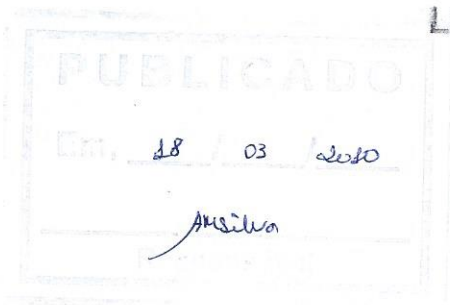 PUBLICADO
Em, 18 / 03 / 2010
AMSilva